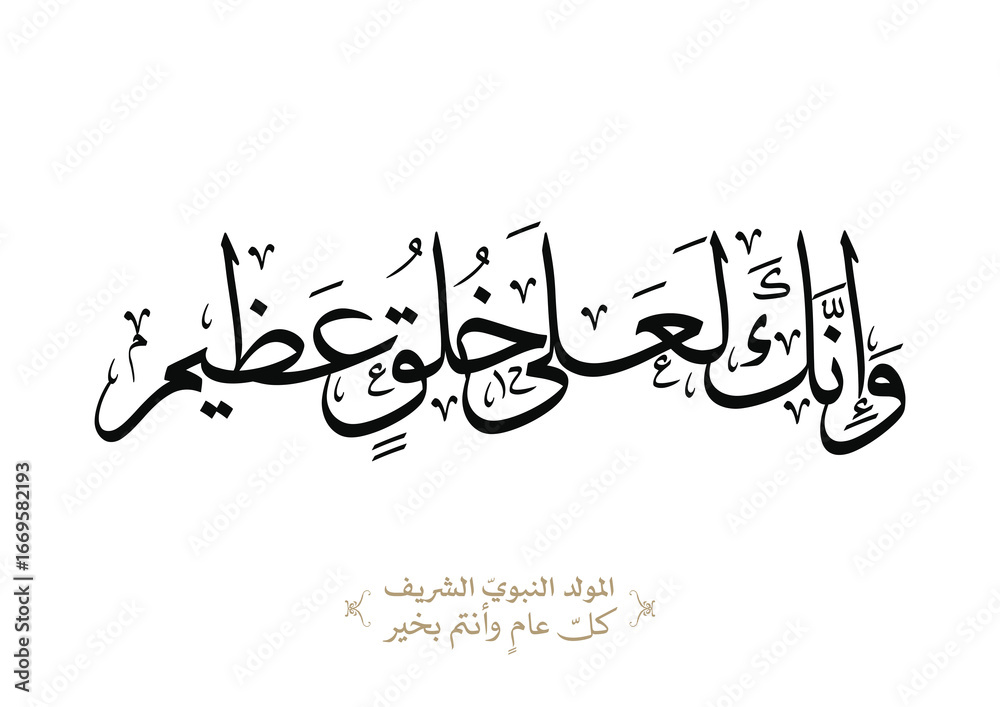 وَإِنَّكَ لَعَلَىَ خُلُقٍ عَظِيم
المولد النبويّ الشريف
كلّ عامٍ وأنتم بخير
Adobe Stock | #1669582193